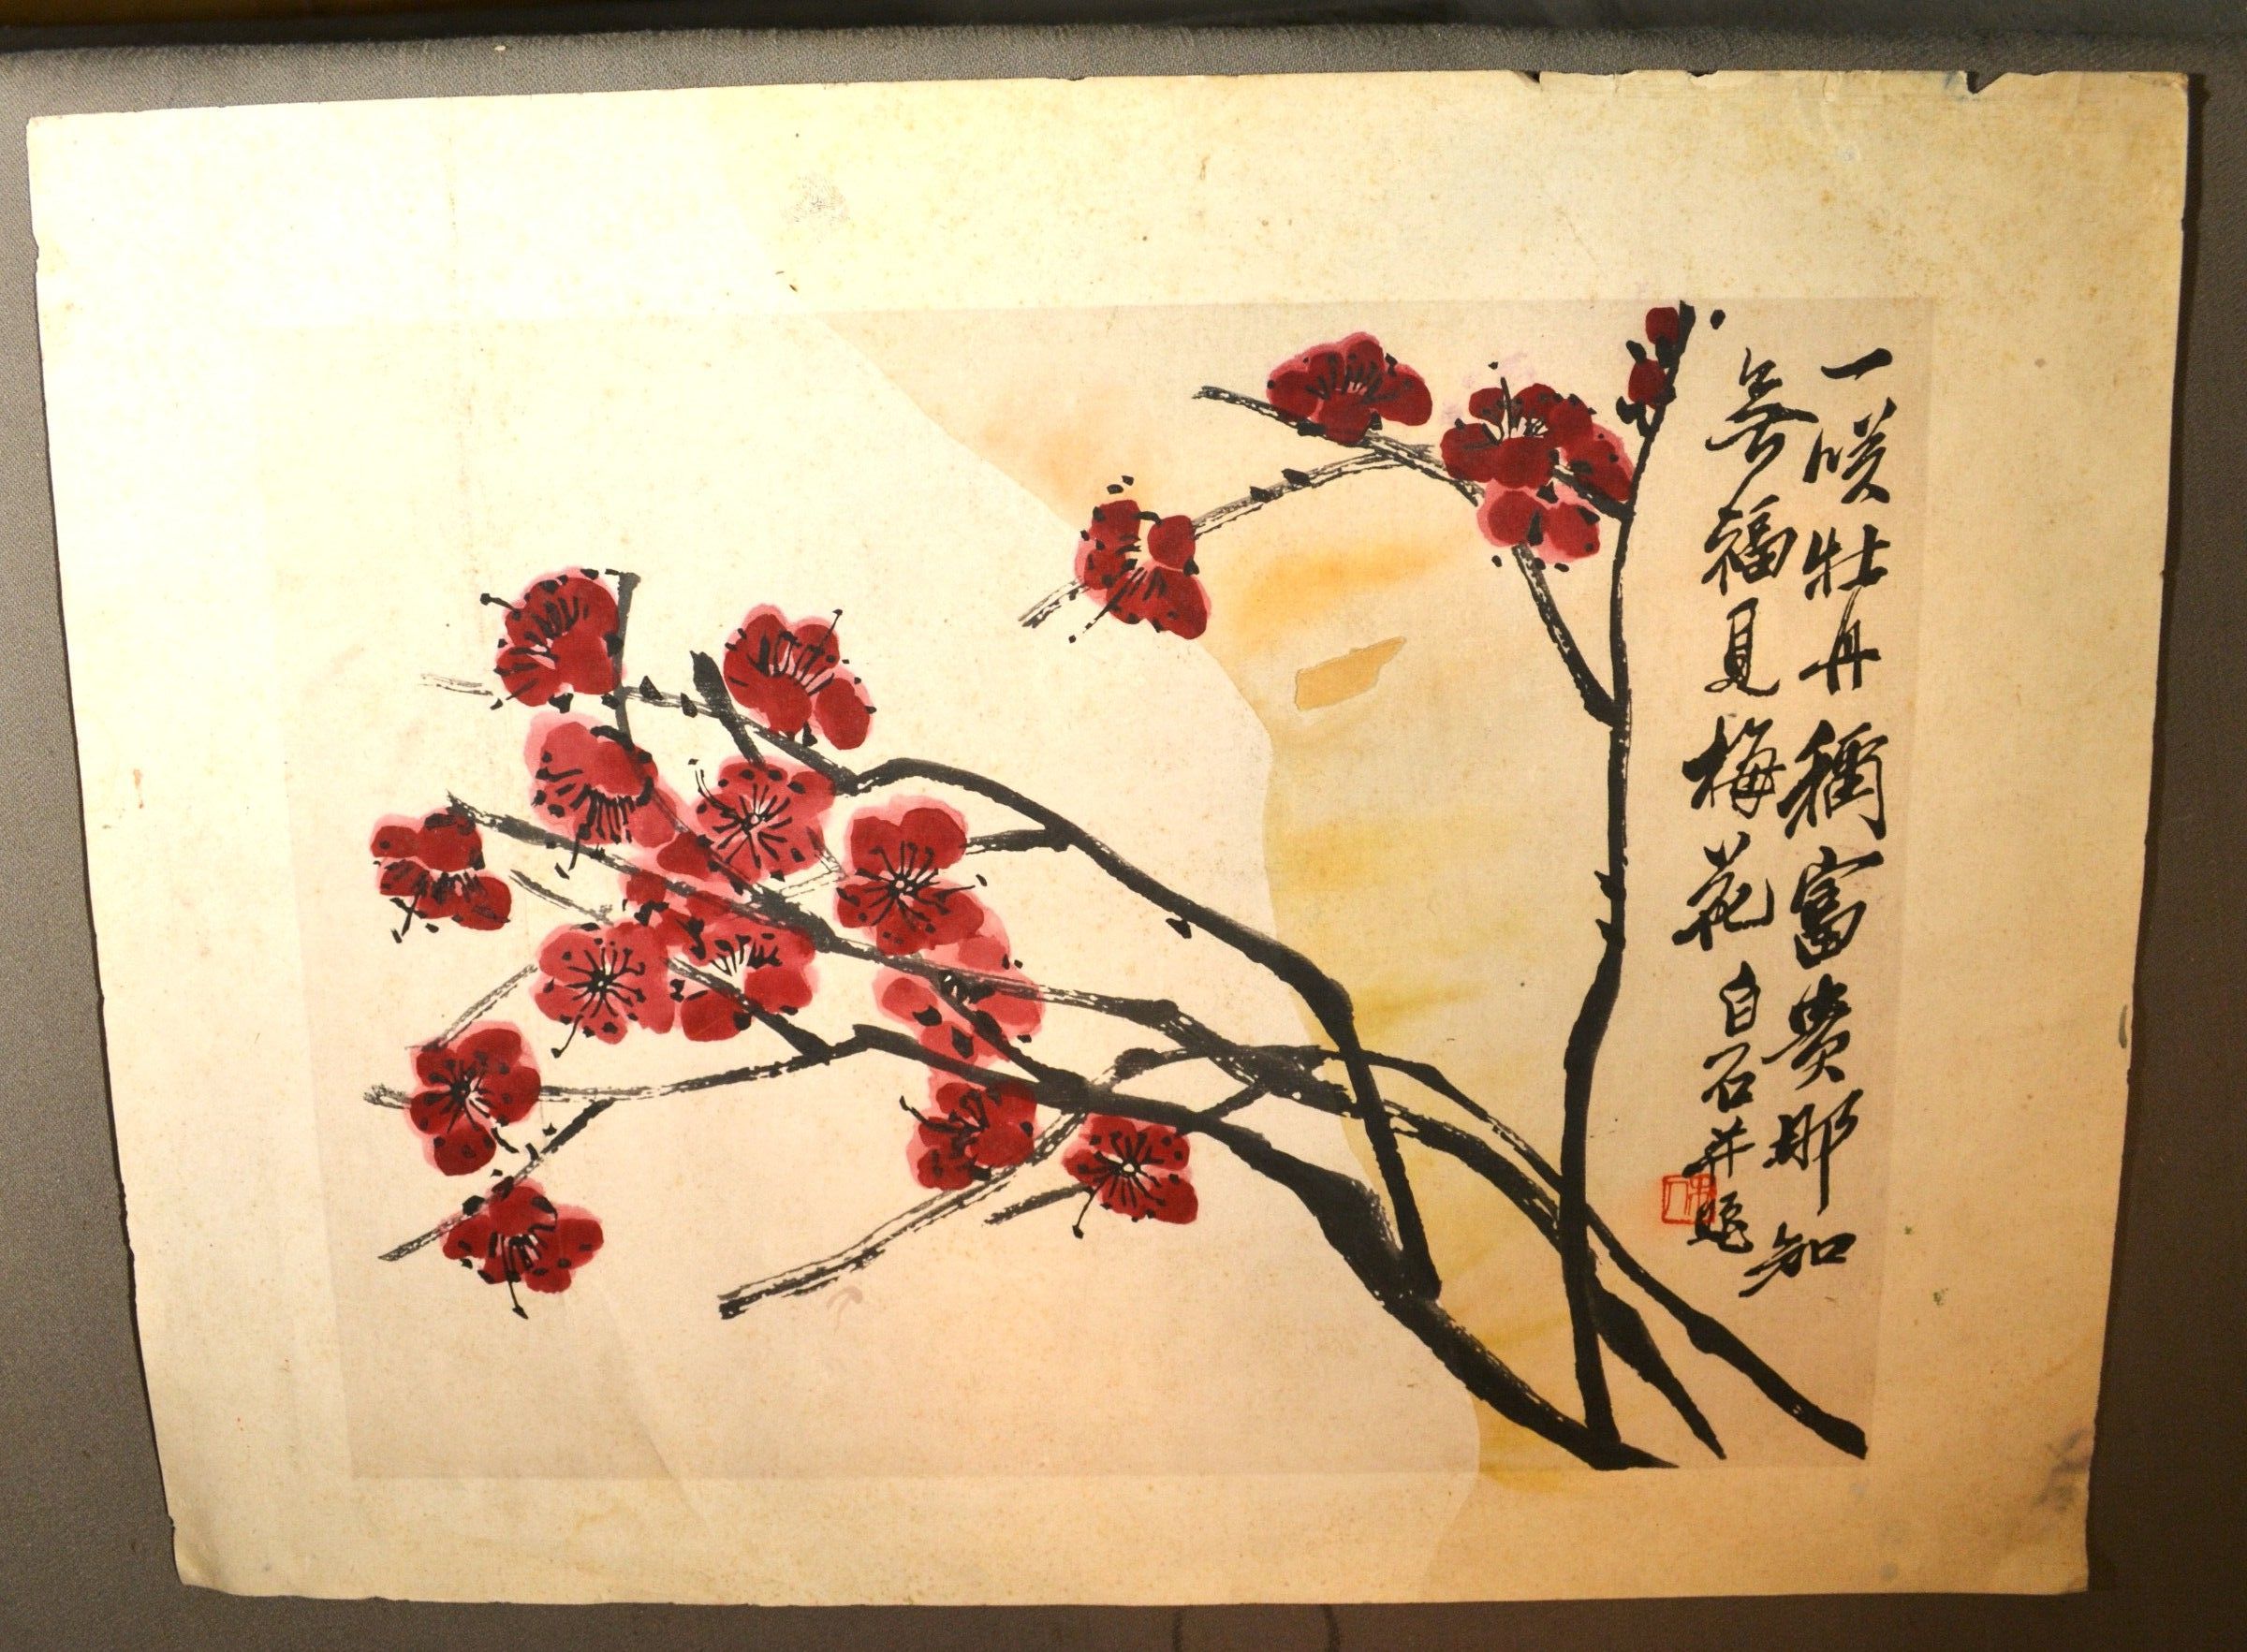 一咲牡丹稱富貴那知
無福見梅花白石并題